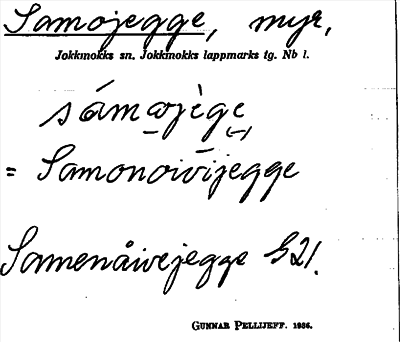 Samojegge, myr,
Jokkmokks sn. Jokkmokks lappmarks tg. Nb l.
sámo̱jège
= Samonoivījegge
Samenåivejegge S21.
GUNNAR PELLIJEFF. 1936.